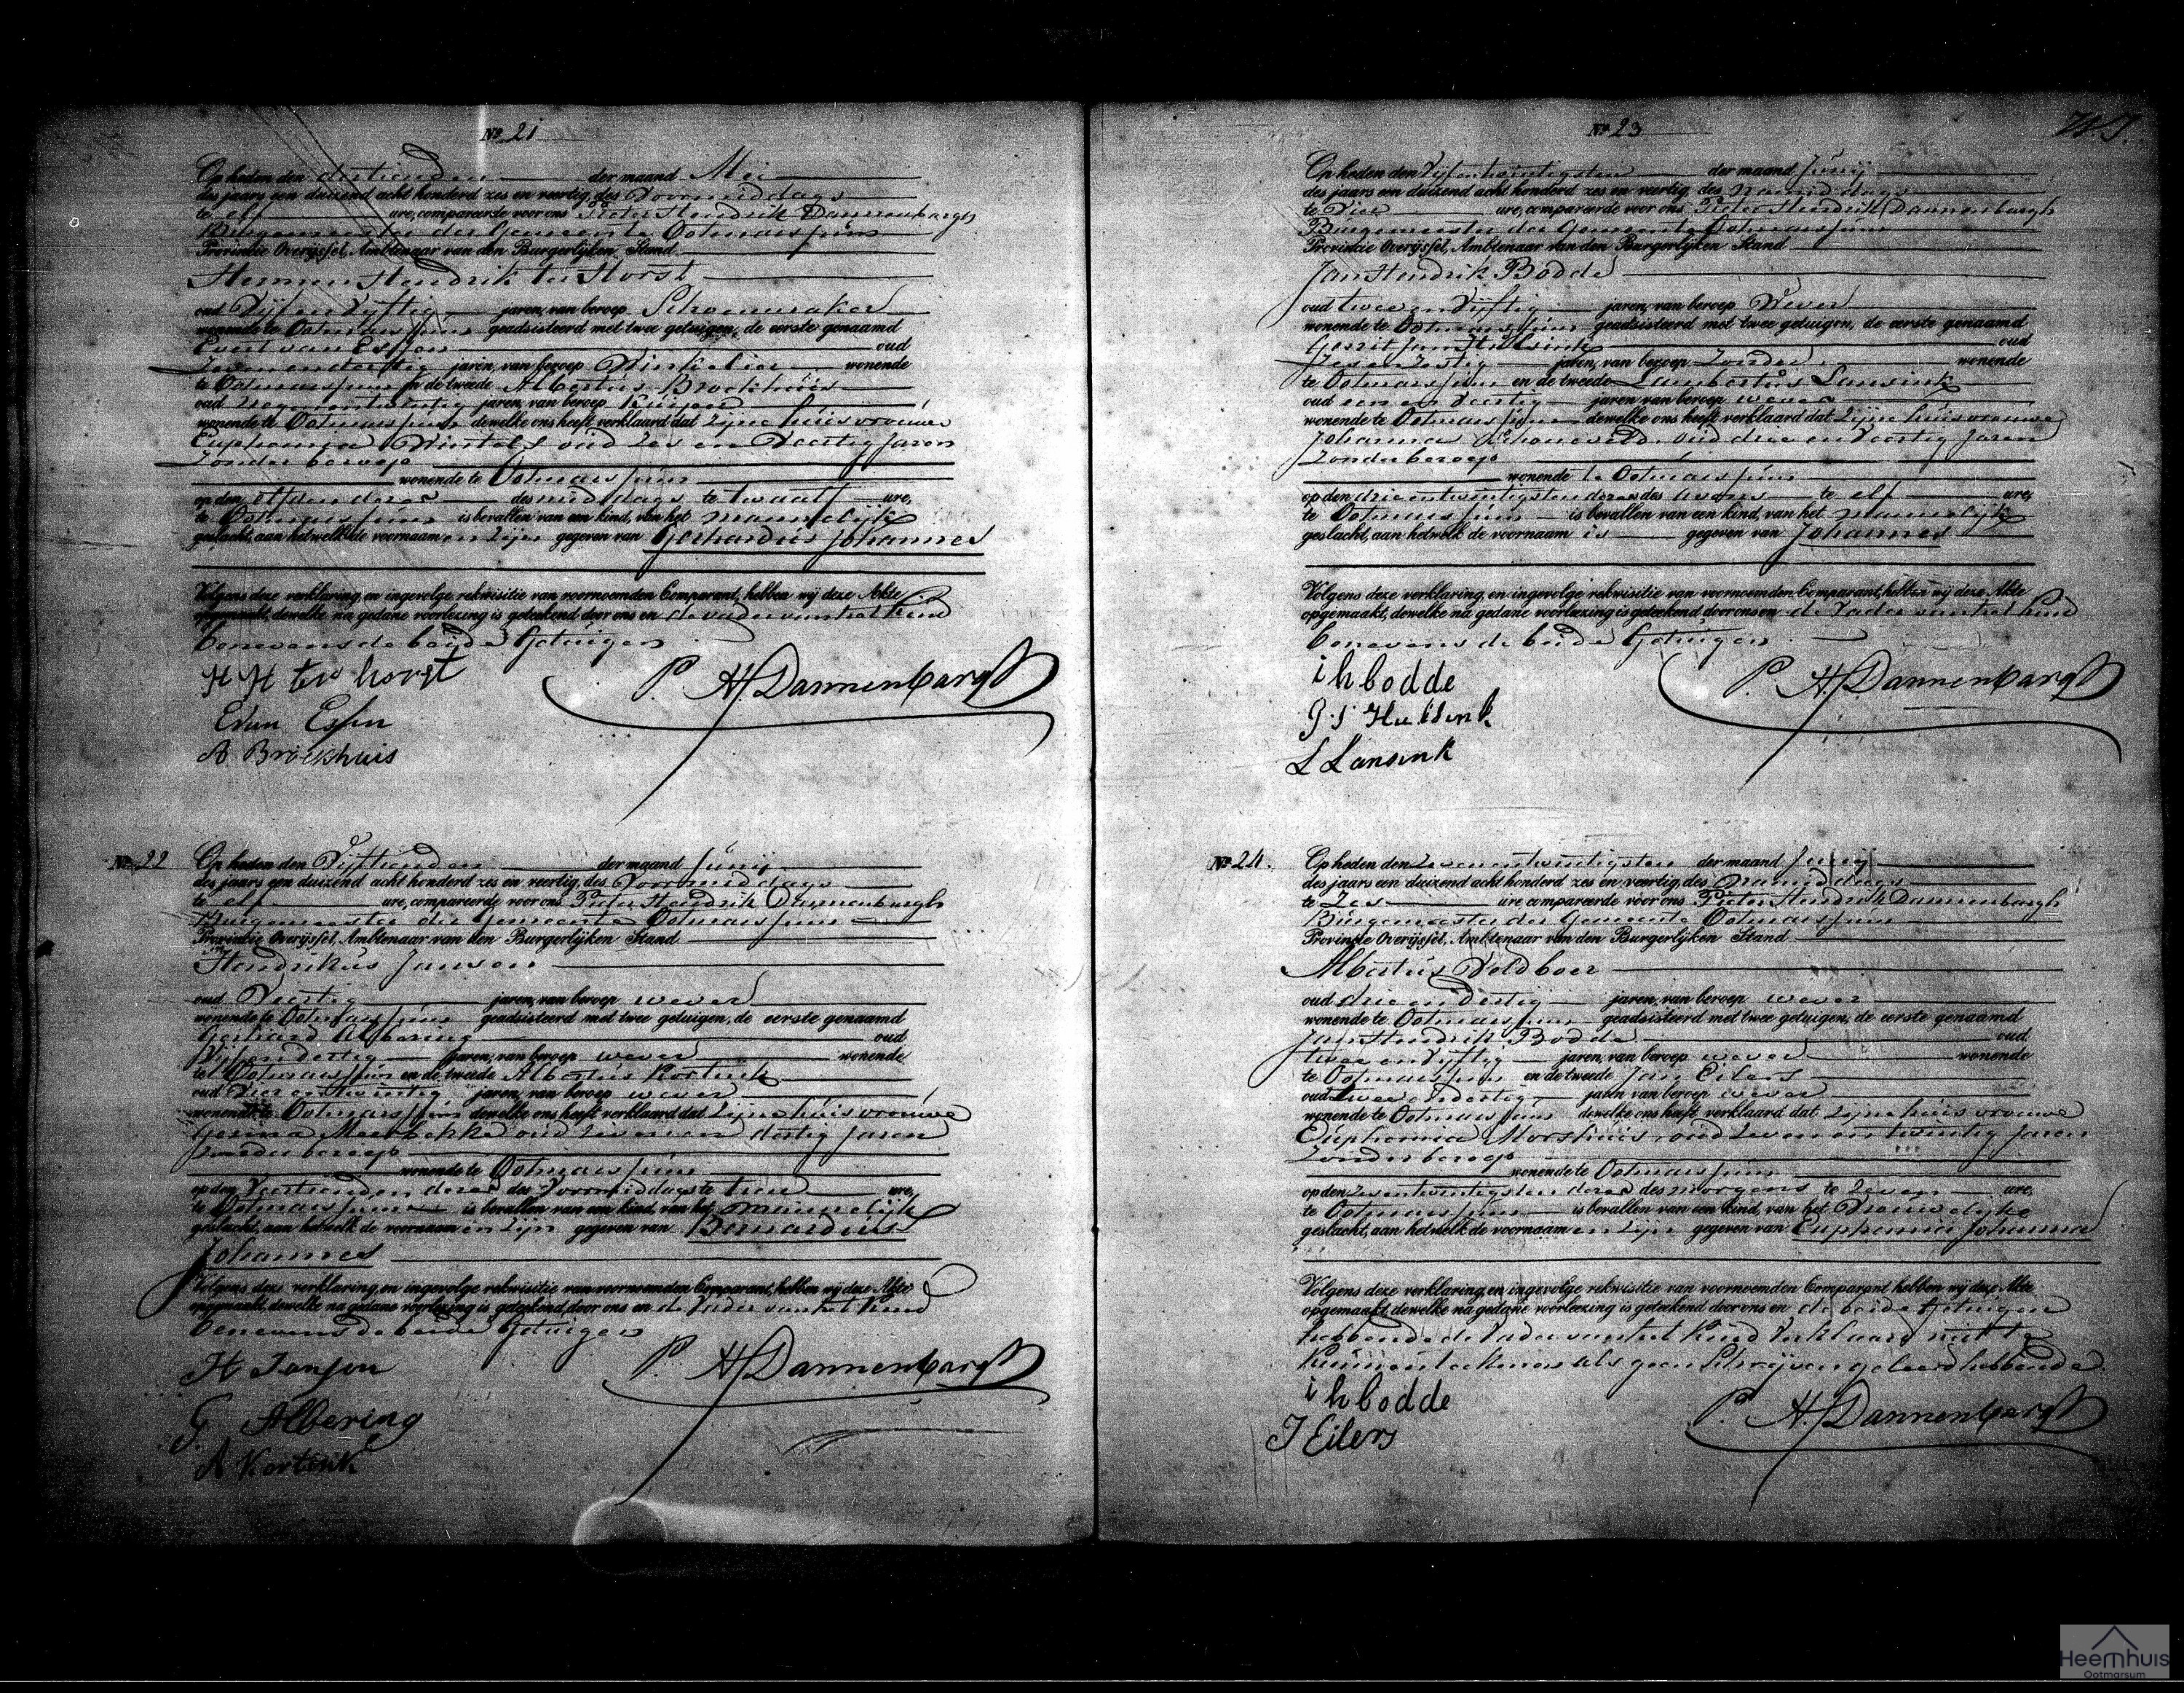 No 21
Op heden den dertienden der maand Mei
des jaars een duizend acht honderd zes en veertig, des Voormiddags
te elf ure, compareerde voor ons Pieter Hendrik Dannenbargh
Burgemeester der Gemeente Ootmarssum
Provincie Overijssel, Ambtenaar van den Burgerlijken Stand
Hermen Hendrik ter Horst
oud Vijf en Vyftig jaren, van beroep Schoenmaker
wonende te Ootmarssum geadsisteerd met twee getuigen, de eerste genaamd
Evert van Essen oud
Zeven en dertig jaren, van beroep Winkelier wonende
te Ootmarssum en de tweede Albertus Broekhuis
oud negenentwintig jaren, van beroep
wonende te Ootmarssum dewelke ons heeft verklaard dat Zijne huisvrouwe
Euphemia oud Zes en Veertig Jaren
Zonder beroep
wonende te Ootmarssum
op den elfden dezer des middags te twaalf ure,
te Ootmarssum is bevallen van een kind, van het mannelijk
geslacht, aan hetwelk de voornaamen zijn gegeven van Gerhardus Johannes
Volgens deze verklaring, en ingevolge rekwisitie van voornoemden Comparant, hebben wij deze Akte
opgemaakt, dewelke na gedane voorlezing is geteekend door ons en de vader van het Kind
benevens de beide Getuigen
H H ter horst P. H. Dannenbargh
E van Essen
A Broekhuis
No 22 Op heden den Vijftienden der maand Junij
des jaars een duizend acht honderd zes en veertig, des Voormiddags
te elf ure, compareerde voor ons Pieter Hendrik Dannenbargh
Burgemeester der Gemeente Ootmarssum
Provincie Overijssel, Ambtenaar van den Burgerlijken Stand
Hendrikus Jansen
oud Veertig jaren, van beroep wever
wonende te Ootmarssum geadsisteerd met twee getuigen, de eerste genaamd
Gerhard Albering oud
Vijf en dertig jaren, van beroep wever wonende
te Ootmarssum en de tweede Albertus Kortink
oud Vier en twintig jaren, van beroep wever
wonende te Ootmarssum dewelke ons heeft verklaard dat Zijne huisvrouwe
Meerbekke oud Zeven en dertig Jaren
Zonder beroep
wonende te Ootmarssum
op den Veertienden dezer des Voormiddags te tien ure,
te Ootmarssum is bevallen van een kind, van het mannelijk
geslacht, aan hetwelk de voornaamen zijn gegeven van Bernardus
Johannes
Volgens deze verklaring, en ingevolge rekwisitie van voornoemden Comparant, hebben wij deze Akte
opgemaakt, dewelke na gedane voorlezing is geteekend door ons en de Vader van het Kind
benevens de beide Getuigen
H Jansen P. H. Dannenbargh
G Albering
A Kortink
No 23
Op heden den Vijfentwintigsten der maand Junij
des jaars een duizend acht honderd zes en veertig, des namiddags
te Vier ure, compareerde voor ons Pieter Hendrik Dannenbargh
Burgemeester der Gemeente Ootmarssum
Provincie Overijssel, Ambtenaar van den Burgerlijken Stand
Jan Hendrik Bodde
oud twee en Vijftig jaren, van beroep Wever
wonende te Ootmarssum geadsisteerd met twee getuigen, de eerste genaamd
Gerrit Jan Hulsink oud
Zes en Zestig jaren, van beroep Zonder wonende
te Ootmarssum en de tweede Lambertus Lansink
oud een en Veertig jaren van beroep wever
wonende te Ootmarssum dewelke ons heeft verklaard dat Zijne huisvrouwe
Johanna Schoneveld oud drie en Veertig Jaren
Zonder beroep
wonende te Ootmarssum
op den drieentwintigsten dezer des avons te elf ure,
te Ootmarssum is bevallen van een kind, van het mannelijk
geslacht, aan hetwelk de voornaam is gegeven van Johannes
Volgens deze verklaring, en ingevolge rekwisitie van voornoemden Comparant, hebben wij deze Akte
opgemaakt, dewelke na gedane voorlezing is geteekend door ons en de Vader van het Kind
benevens de beide Getuigen
i h bodde P. H. Dannenbargh
G. J Hulsink
L Lansink
No 24. Op heden den Zevenentwintigsten der maand Junij
des jaars een duizend acht honderd zes en veertig, des namiddags
te Zes ure compareerde voor ons Pieter Hendrik Dannenbargh
Burgemeester der Gemeente Ootmarssum
Provincie Overijssel, Ambtenaar van den Burgerlijken Stand
Albertus Veldboer
oud drie en dertig jaren, van beroep wever
wonende te Ootmarssum geadsisteerd met twee getuigen, de eerste genaamd
Jan Hendrik Bodde oud
twee en Vyftig jaren, van beroep wever wonende
te Ootmarssum en de tweede Jan Eilers
oud twee en dertig jaren van beroep wever
wonende te Ootmarssum dewelke ons heeft verklaard dat Zijne huisvrouwe
Euphemia Morshuis oud Zeven en twintig Jaren
Zonder beroep
wonende te Ootmarssum
op den Zesentwintigsten dezer des morgens te Zeven ure,
te Ootmarssum is bevallen van een kind, van het Vrouwelyke
geslacht, aan hetwelk de voornaamen zijn gegeven van Euphemia Johanna
Volgens deze verklaring, en ingevolge rekwisitie van voornoemden Comparant hebben wij deze Akte
opgemaakt dewelke na gedane voorlezing is geteekend door ons en de beide Getuigen
hebbende de Vader van het Kind Verklaard niet te
Kunnen teekenen als geen Schryven geleerd hebbende
i h bodde P. H. Dannenbargh
J Eilers
Heemhuis
Ootmarsum